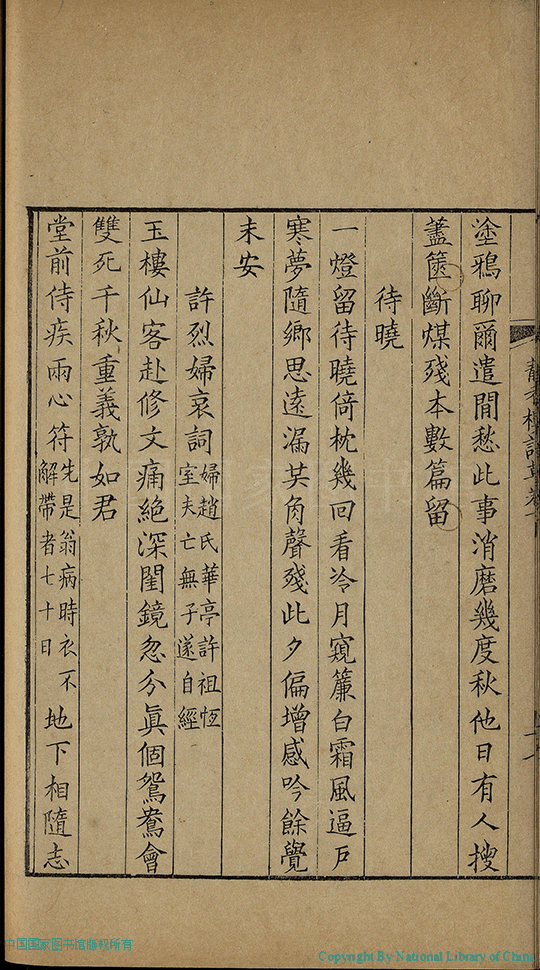 塗鴉聊爾遣閒愁此事消磨幾度秋他日有人搜
蠹篋斷煤殘本數篇留
待曉
一燈留待曉倚枕幾回看冷月窺簾白霜風逼戶
寒夢隨鄉思遠漏共角聲殘此夕偏增感吟餘覺
未安
許烈婦哀詞
婦趙氏華亭許祖恆
室夫亡無子遂自經
玉樓仙客赴修文痛絕深閨鏡忽分眞個鴛鴦會
雙死千秋重義孰如君
堂前侍疾兩心符
先是翁病時衣不
解帶者七十日
地下相隨志
中国国家图书馆版权所有
Copyright By National Library of China